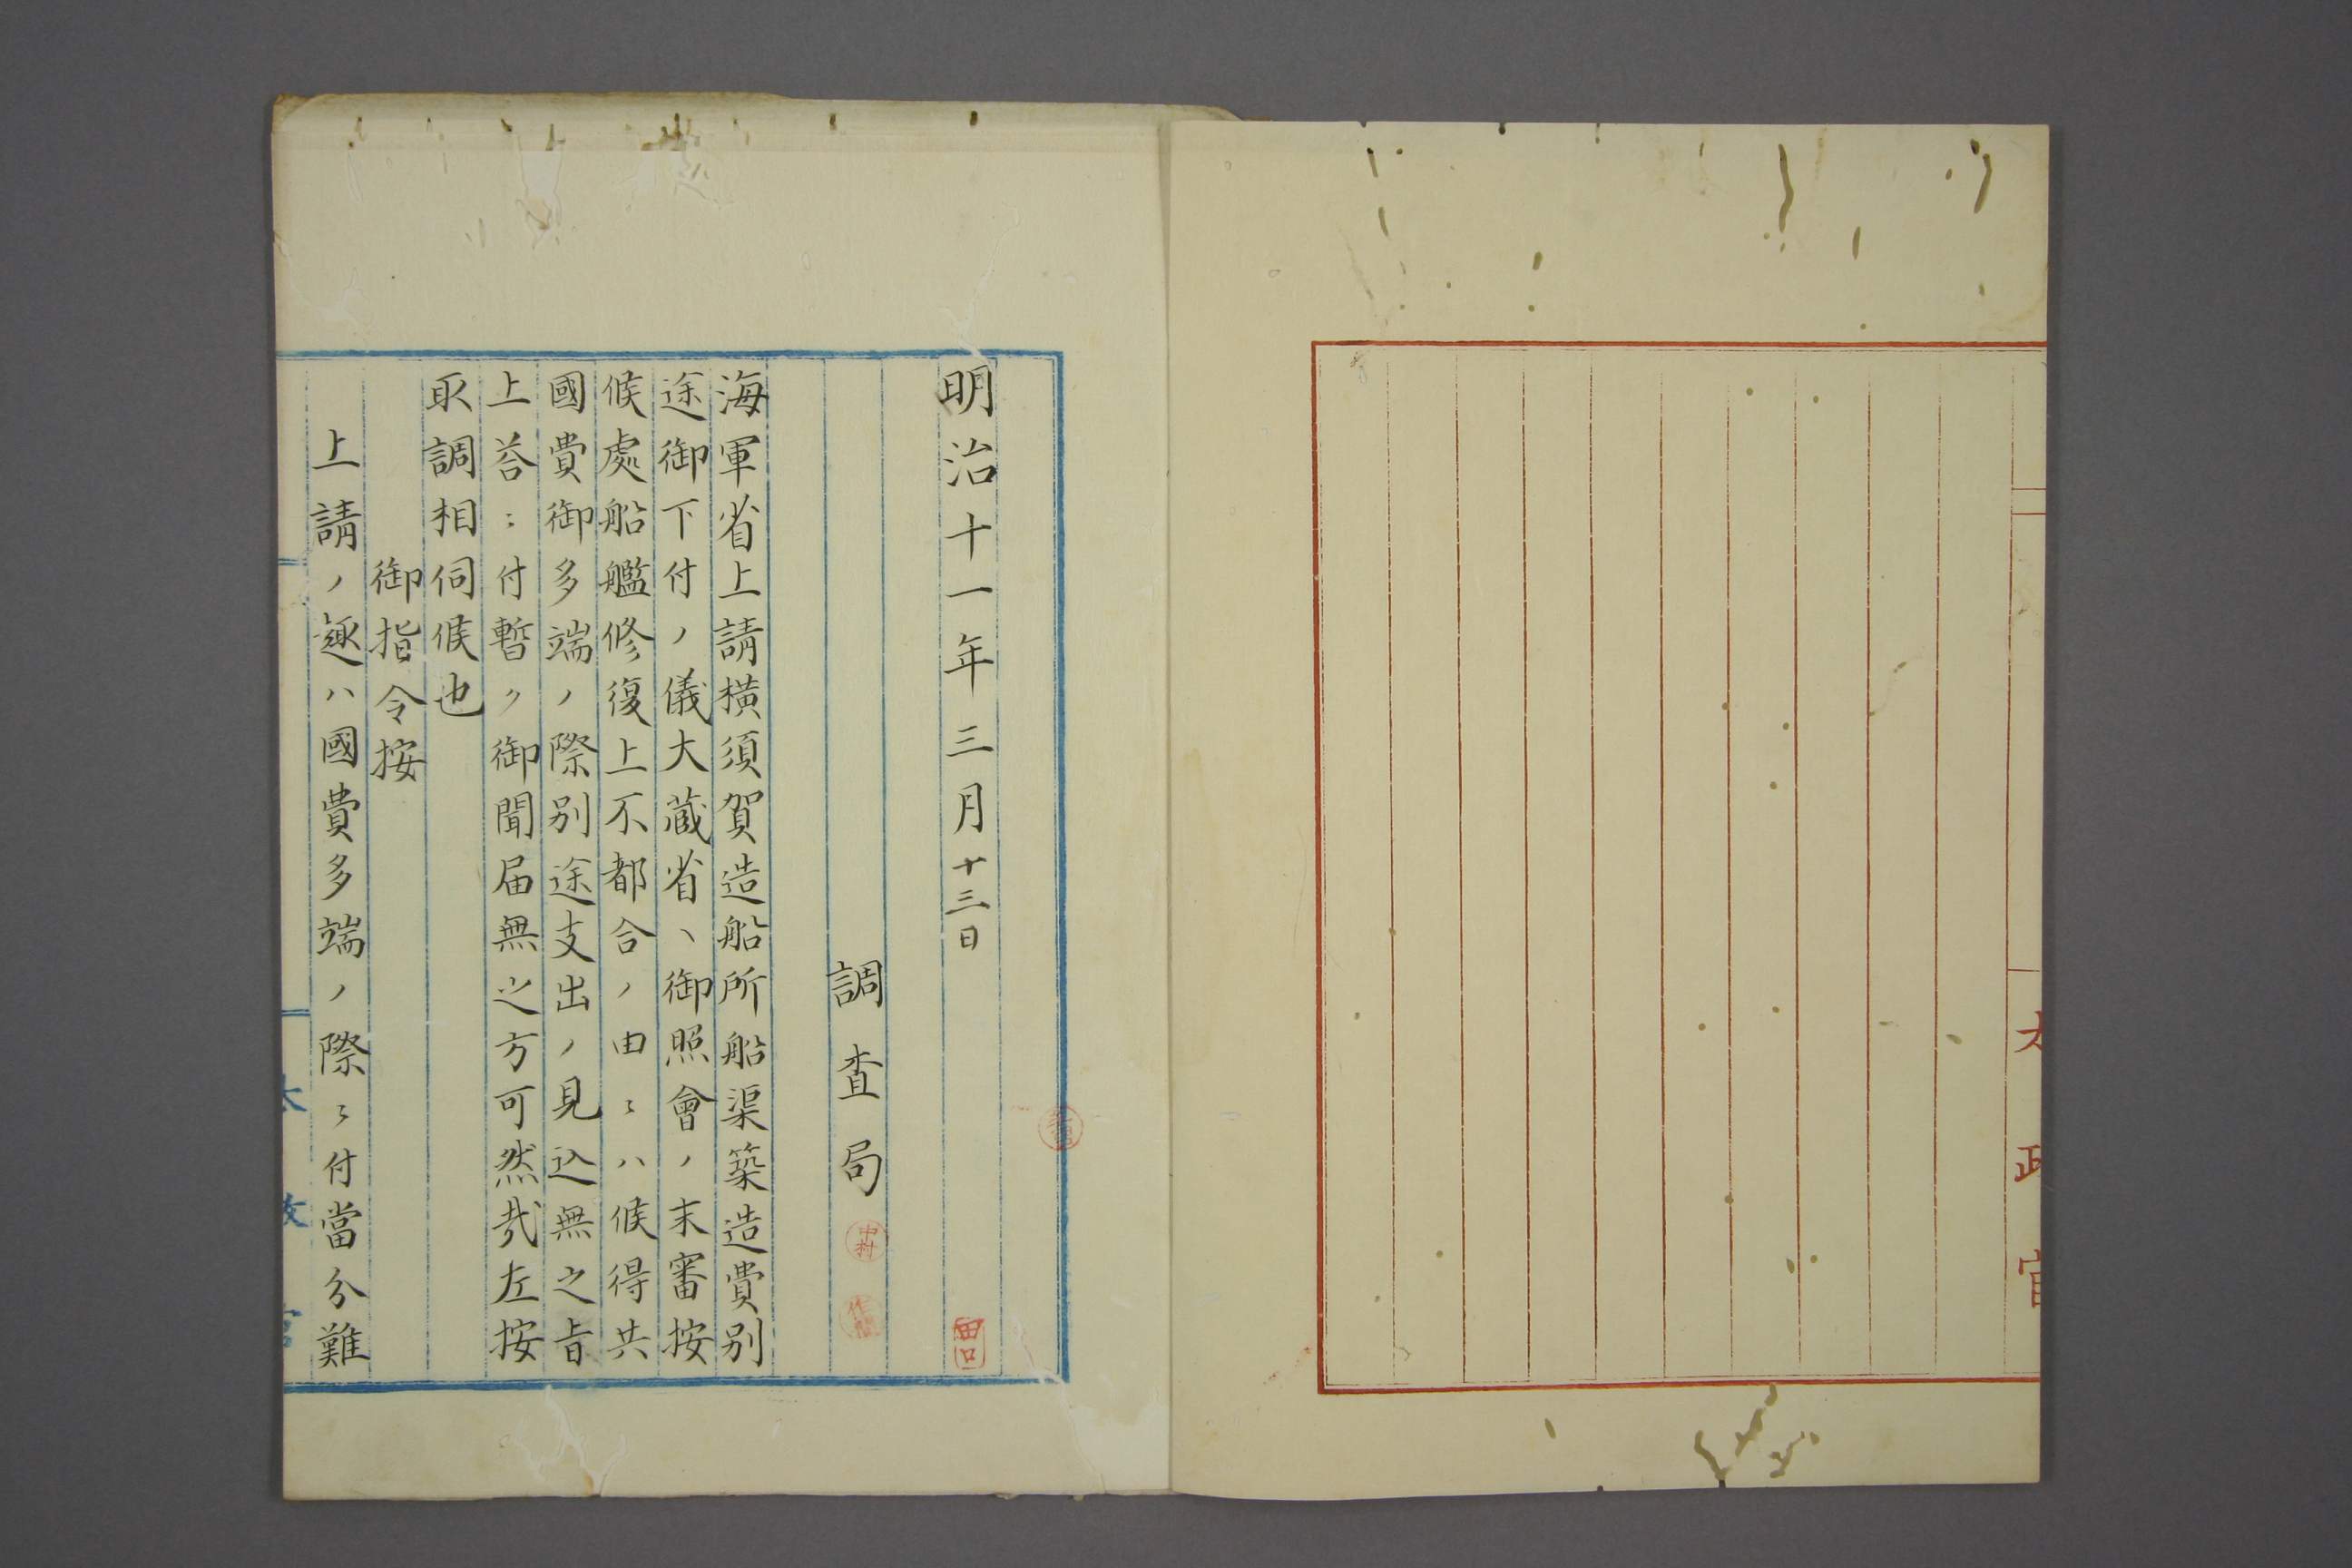 太政官
明治十一年三月十三日
田口
調査局
中村
作間
海軍省上請横須賀造船所船渠築造費別
途御下付ノ儀大蔵省ヘ御照會ノ末審按
候處船艦修復上不都合ノ由ニハ候得共
國費御多端ノ際別途支出ノ見込無之旨
上荅ニ付暫ク御聞届無之方可然哉左按
取調相伺候也
御指令按
上請ノ趣ハ國費多端ノ際ニ付當分難
太政官